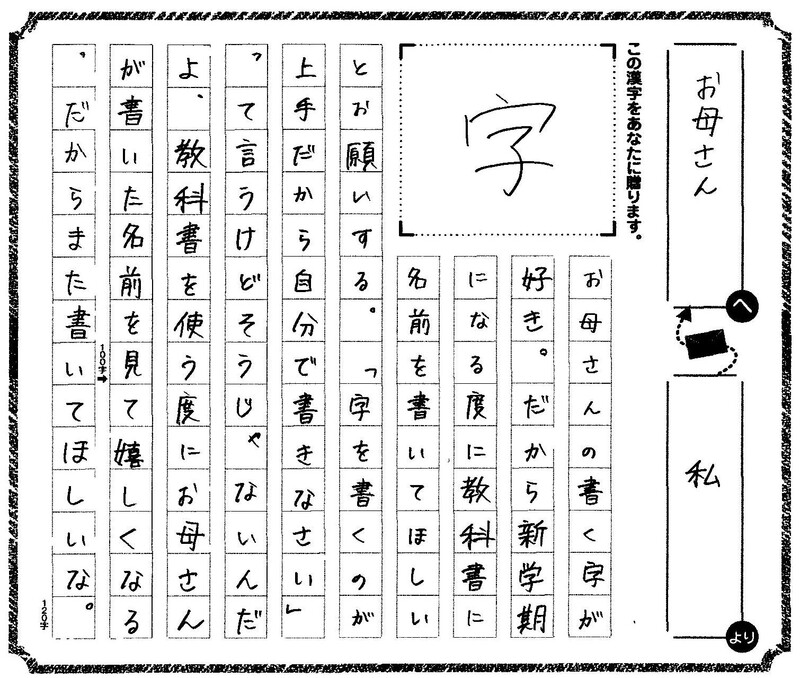 お母さん
へ
私
より
この漢字をあなたに贈ります。
字
お母さんの書く字が
好き。だから新学期
になる度に教科書に
名前を書いてほしい
とお願いする。「字を書くのが
上手だから自分で書きなさい」
、て言うけどそうじゃないんだ
よ、教科書を使う度にお母さん
が書いた名前を見て嬉しくなる
、だからまた書いてほしいな。
100字
120字